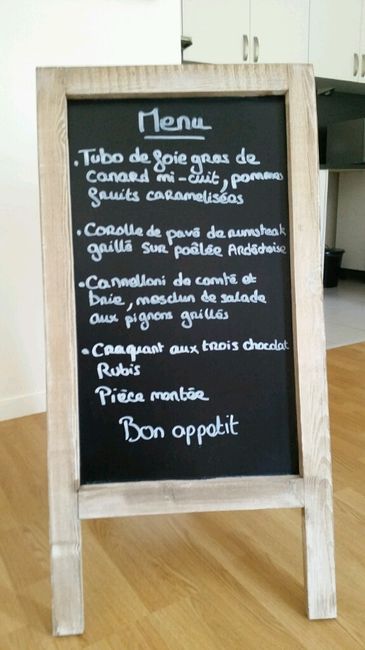 Menu
• Tubo de foie gras de
canard mi-cuit, pommes
fruits caramélisées
• Corolle de pavé de rumsteak
grillé sur poêlée Ardéchoise
• Cannelloni de comté et
brie, mesclun de salade
aux pignons grillés
• Craquant aux trois chocolat
Rubis
Pièce montée
Bon appétit